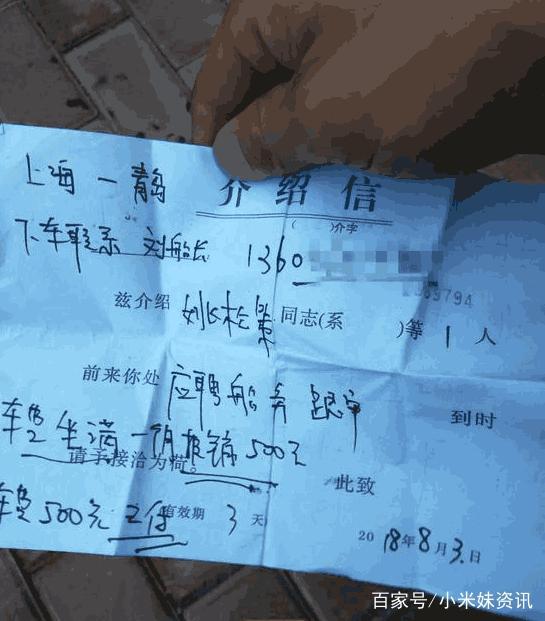 上海一青岛
介绍信
( )介字
下车联系 刘船长 1360
兹介绍 同志(系 )等 1 人
前来你处 应聘船务 到时
车费坐满一月报销500元
请予接洽为荷。
此致
车费500元已付 有效期 3 天
2018年8月3日
百家号/小米妹资讯